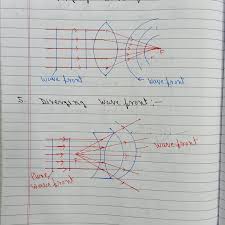 wave front wave front
5. Diverging wave front :-
wave front
Plane
wave front